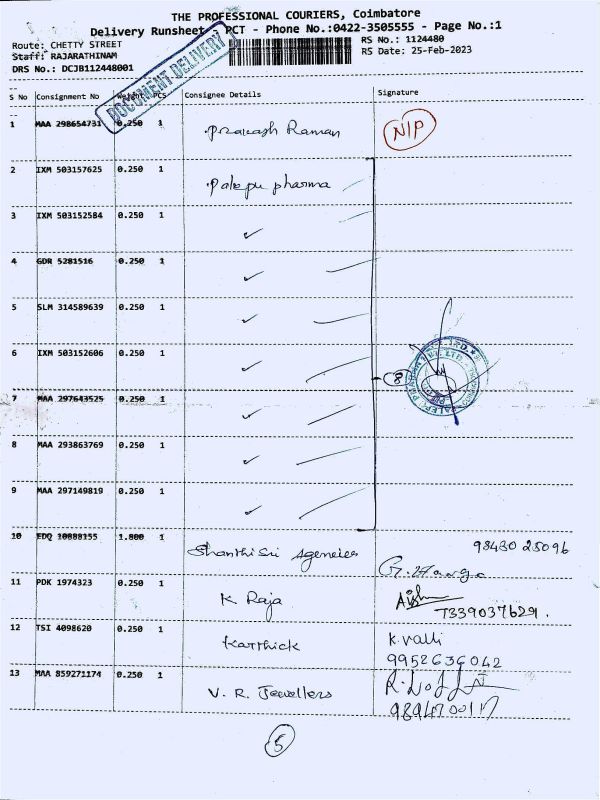 THE PROFESSIONAL COURIERS, Coimbatore
Delivery Runsheet PCT - Phone No.:0422-3505555 - Page No.:1
Route: CHETTY STREET RS No.: 1124480
Staff: RAJARATHINAM RS Date: 25-Feb-2023
DRS No.: DCJB112448001
DOCUMENT DELIVERY
S No Consignment No Weight PCS Consignee Details Signature
1 MAA 298654731 0.250 1 Prakash Raman N/P
2 IXM 503157625 0.250 1 Palepu pharma
3 IXM 503152584 0.250 1 ✓
4 GDR 5281516 0.250 1 ✓
5 SLM 314589639 0.250 1 ✓
6 IXM 503152606 0.250 1 ✓
8
7 MAA 297643525 0.250 1 ✓
8 MAA 293863769 0.250 1 ✓
9 MAA 297149819 0.250 1 ✓
10 EDQ 10888155 1.800 1 Shanthi Sri Agencies 98430 25096
11 PDK 1974323 0.250 1 K Raja
7339037629.
12 TSI 4098620 0.250 1 Karthick K. Valli
9952636042
13 MAA 859271174 0.250 1 V. R. Jewellers
5